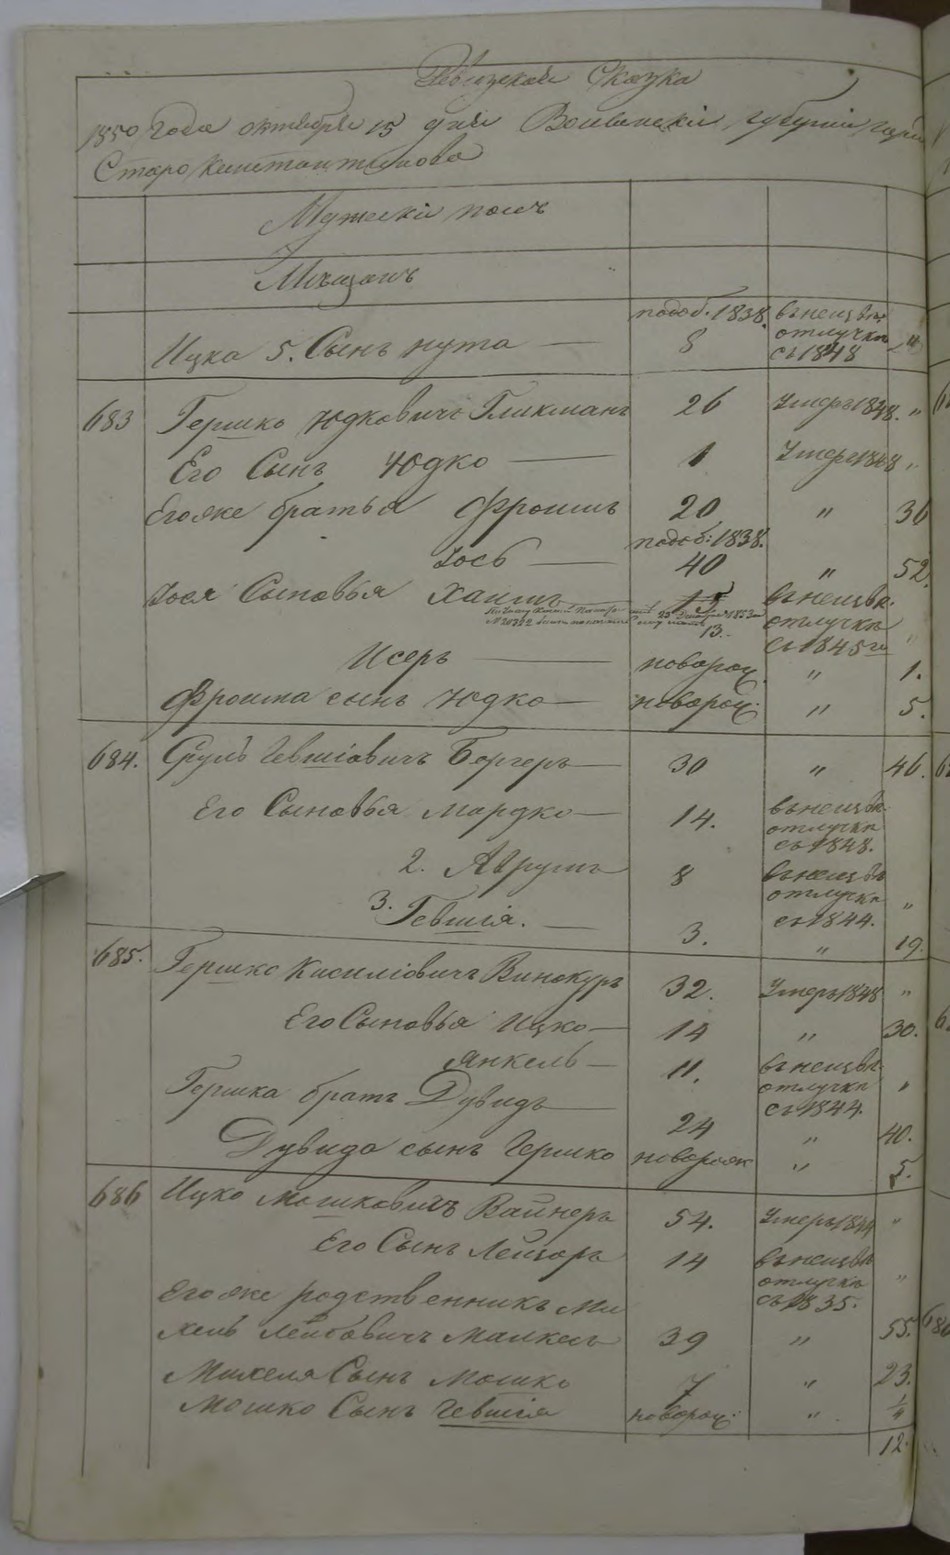 Ревизская Сказка
1850 Года октября 15 дня Волынскія губерніи
Старо Константинова
Мужескій полъ
Мѣщанъ
подоб. 1838. въ неизвѣ.
Ицка 5. Сынъ Нута — 8 отлучкѣ съ 1848 "
683 Гершко Юдковичъ Гликманъ 26 Умеръ 1848. "
Его Сынъ Юдко — 1 Умеръ 1848 "
Егоже братья Фроимъ 20 " 36
подоб: 1838.
Іось — 40 " 52.
Іося Сыновья Хаимъ 15 въ неизвѣ.
13. отлучкѣ
съ 1845 го "
Исеръ — новорож. " 1.
Фроима сынъ Юдко — новорож: " 5.
684. Сруль Гевшіовичъ Бергеръ — 30 " 46.
Его Сыновья Мардко — 14. въ неизвѣ. отлучкѣ съ 1848.
2. Аврумъ 8 въ неизвѣ отлучкѣ съ 1844. "
3. Гевшія. — 3. " 19.
685. Гершко Кисиліовичъ Винокуръ 32. Умеръ 1848 "
Его Сыновья Ицко — 14 " 30.
Янкель — 11. въ неизвѣ. отлучкѣ съ 1844. "
Гершка братъ Дувидъ — 24 " 40.
Дувида сынъ Гершко новорож " 5.
686 Ицко Мошковичъ Вайнеръ 54. Умеръ 1844 "
Его Сынъ Лейзоръ 14 въ неизвѣ отлучкѣ съ 1835. "
Егоже родственникъ Ми
хель Лейбовичъ 39 " 55.
Михеля Сынъ Мошко 7 " 23.
Мошко Сынъ Гевшія новорож: " 1/4
12.